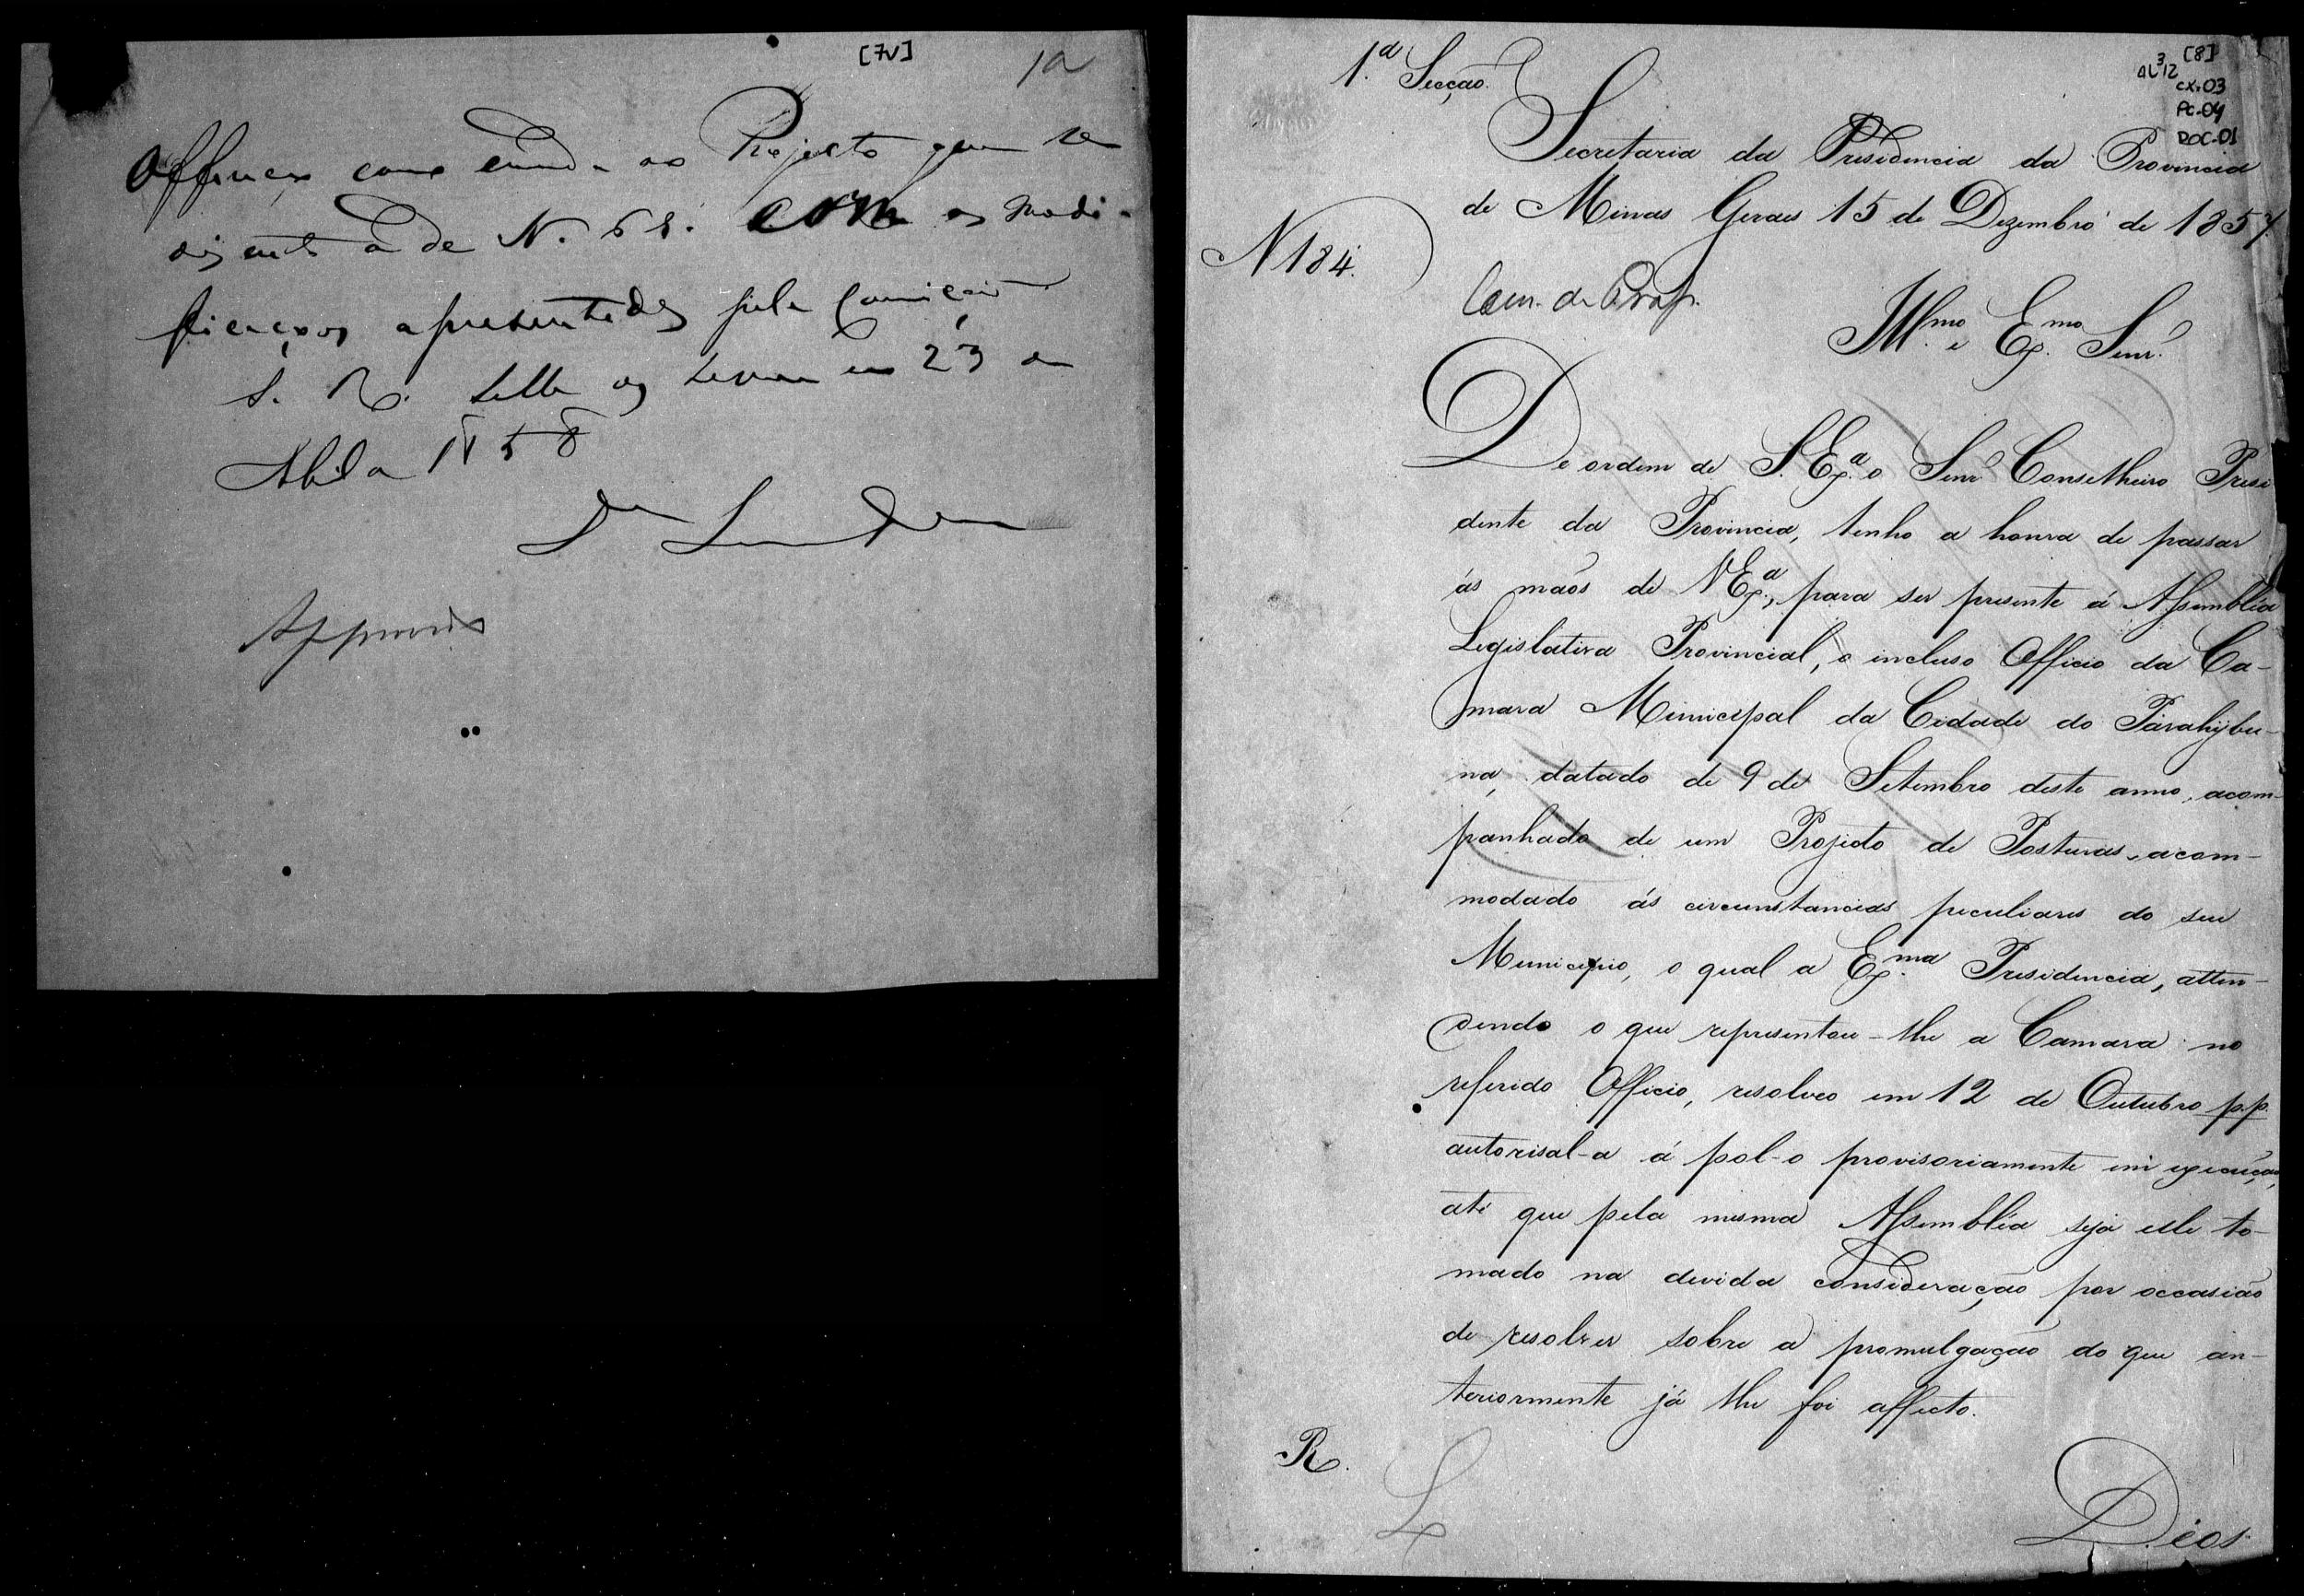 [7V]
1a
Offereço como emenda ao Projecto que se
N. 68. com as modi-
ficaçoes apresentadas pela Comição
S. R. 23 de
Abril de 1858
Approvado
[8]
AL 3 12
cx. 03
PC. 04
DOC. 01
1.ª Secção.
Secretaria da Presidencia da Provincia
de Minas Geraes 15 de Dezembro de 1857.
N 184.
Com. de Prop.
Ill.mo e Ex.mo Senr.
De ordem de S. Ex.ª o Senr Conselheiro Presi
dente da Provincia, tenho a honra de passar
ás mãos de V Ex.ª, para ser presente á Assembléa
Legislativa Provincial, o incluso Officio da Ca-
mara Municipal da Cidade do Parahybu-
na, datado de 9 de Setembro deste anno, acom-
panhado de um Projecto de Posturas, acom-
modado ás circunstancias peculiares do seu
Municipio, o qual a Ex.ma Presidencia, atten-
dendo o que representou-lhe a Camara no
referido Officio, resolveo em 12 de Outubro p.p.
autorisal-a á pol-o provisoriamente em execução,
até que pela mesma Assembléa seja elle to-
mado na devida consideração por occasião
de resolver sobre a promulgação do que an-
teriormente já lhe foi affecto.
R.
Deos